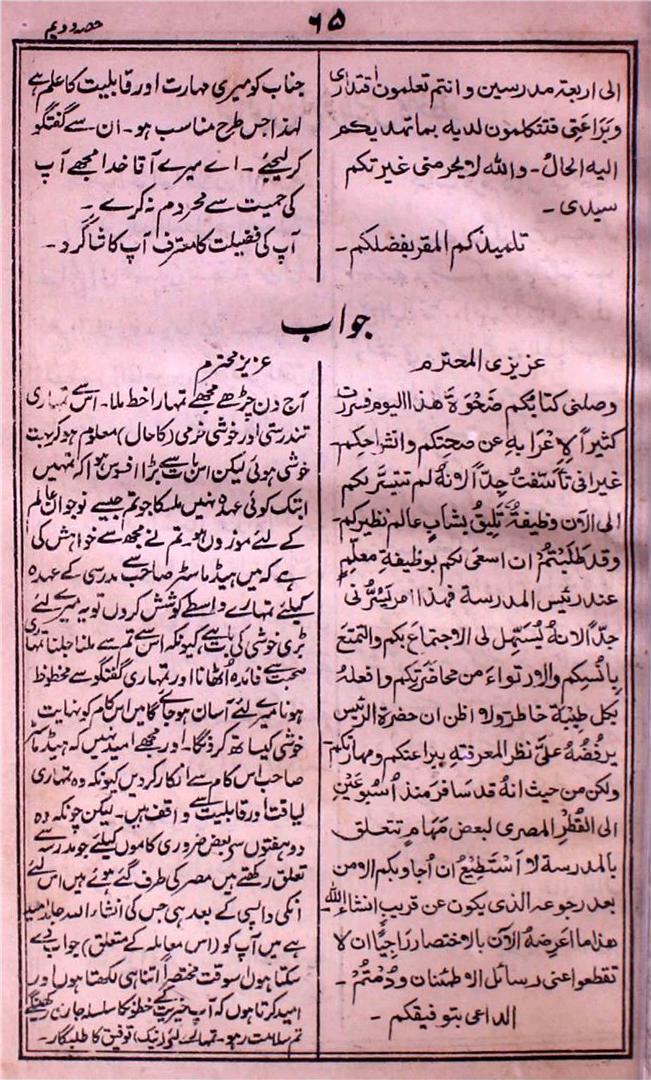 ۶۵
حصہ دویم
الی اربعة مدرسین وانتم تعلمون اقتداری
وبَرَاعَتِی فتتکلمون لدیه بما تهدیکم
الیه الحالُ۔ والله لا یحرمنی غیرتکم
سیدی۔
تلمیذکم المقر بفضلکم۔
جناب کو میری مہارت اور قابلیت کا علم ہے
لہذا جس طرح مناسب ہو۔ ان سے گفتگو
کر لیجئے۔ اے میرے آقا خدا مجھے آپ
کی حمیت سے محروم نہ کرے۔
آپ کی فضیلت کا معترف آپ کا شاگرد۔
جواب
عزیزی المحترم
وصلنی کتابکم ضَحْوَةَ هذا الیوم فسررت
کثیراً لِاِعْرَابِهٖ عن صحتکم وانشراحکم۔
غیر انی تأسّفتُ جِدّاً لانهُ لم تتیسّر لکم
الی الآن وظیفةٌ تَلِیقُ بشابٍ عالم نظیرکم۔
وقد طَلَبْتُمْ ان اسعی لکم بوظیفةِ معلّمٍ
عند رئیس المدرسة فهذا امر یَسُرُّنی
جدّاً لانهُ یُسَهِّل لی الاجتماعَ بکم والتمتّعَ
بِاُنْسِکم والارتواءَ من محاضَرَتِکم وافعلهُ
بکل طِیْبَةِ خاطر۔ ولا اظن ان حضرة الرئیس
یرفُضُهُ علیَّ نظرا لمعرفتهٖ ببراعتکم ومهارتکم۔
ولکن من حیث انهُ قد سافَرَ منذُ اُسْبُوعَیْنِ
الی القُطْرِ المصری لبعض مَهَامٍ تتعلق
بالمدرسة لا اَسْتَطِیْعُ ان اُجاوبکم الا من
بعد رجوعهِ الذی یکون عن قریبٍ انشاء الله
هذا ما اَعْرِضُهُ الآن بالاختصار رَاجِیًا ان لا
تقطعوا عنی رسائل الاطمئنان ودُمْتُمْ۔
الداعی بتوفیقکم۔
عزیز محترم
آج دن چڑھے مجھے تمہارا خط ملا۔ اس سے تمہاری
تندرستی اور خوشی خرمی (کا حال) معلوم ہو کر بہت
خوشی ہوئی لیکن اس بات سے بڑا افسوس ہوا کہ تمہیں
ابتک کوئی عہدہ نہیں ملسکا جو تم جیسے نوجوان عالم
کے لئے موزوں ہو۔ تم نے مجھ سے خواہش کی
ہے کہ میں ہیڈ ماسٹر صاحب سے مدرسی کے عہدہ
کیلئے تمہارے واسطے کوشش کروں تو یہ میرے لئے
بڑی خوشی کی بات ہے کیونکہ اس سے تم سے ملنا جلنا تمہاری
صحبت سے فائدہ اُٹھانا اور تمہاری گفتگو سے محظوظ
ہونا میرے لئے آسان ہو جائے گا میں اس کام کو نہایت
خوشی کیساتھ کرونگا۔ اور مجھے امید نہیں کہ ہیڈ ماسٹر
صاحب اس کام سے انکار کردیں کیونکہ وہ تمہاری
لیاقت اور قابلیت سے واقف ہیں۔ لیکن چونکہ وہ
دو ہفتوں سے بعض ضروری کاموں کیلئے جو مدرسہ سے
تعلق رکھتے ہیں مصر کی طرف گئے ہوئے ہیں اس لئے
انکی واپسی کے بعد ہی جس کی انشاء اللہ جلد امید
ہے میں آپ کو (اس معاملہ کے متعلق) جواب دے
سکتا ہوں اسوقت مختصراً اتنا ہی لکھتا ہوں اور
امید کرتا ہوں کہ آپ خیریت کے خطوط کا سلسلہ جاری رکھینگے
تم سلامت رہو۔ تمہارے لئے (نیک) توفیق کا طلبگار۔